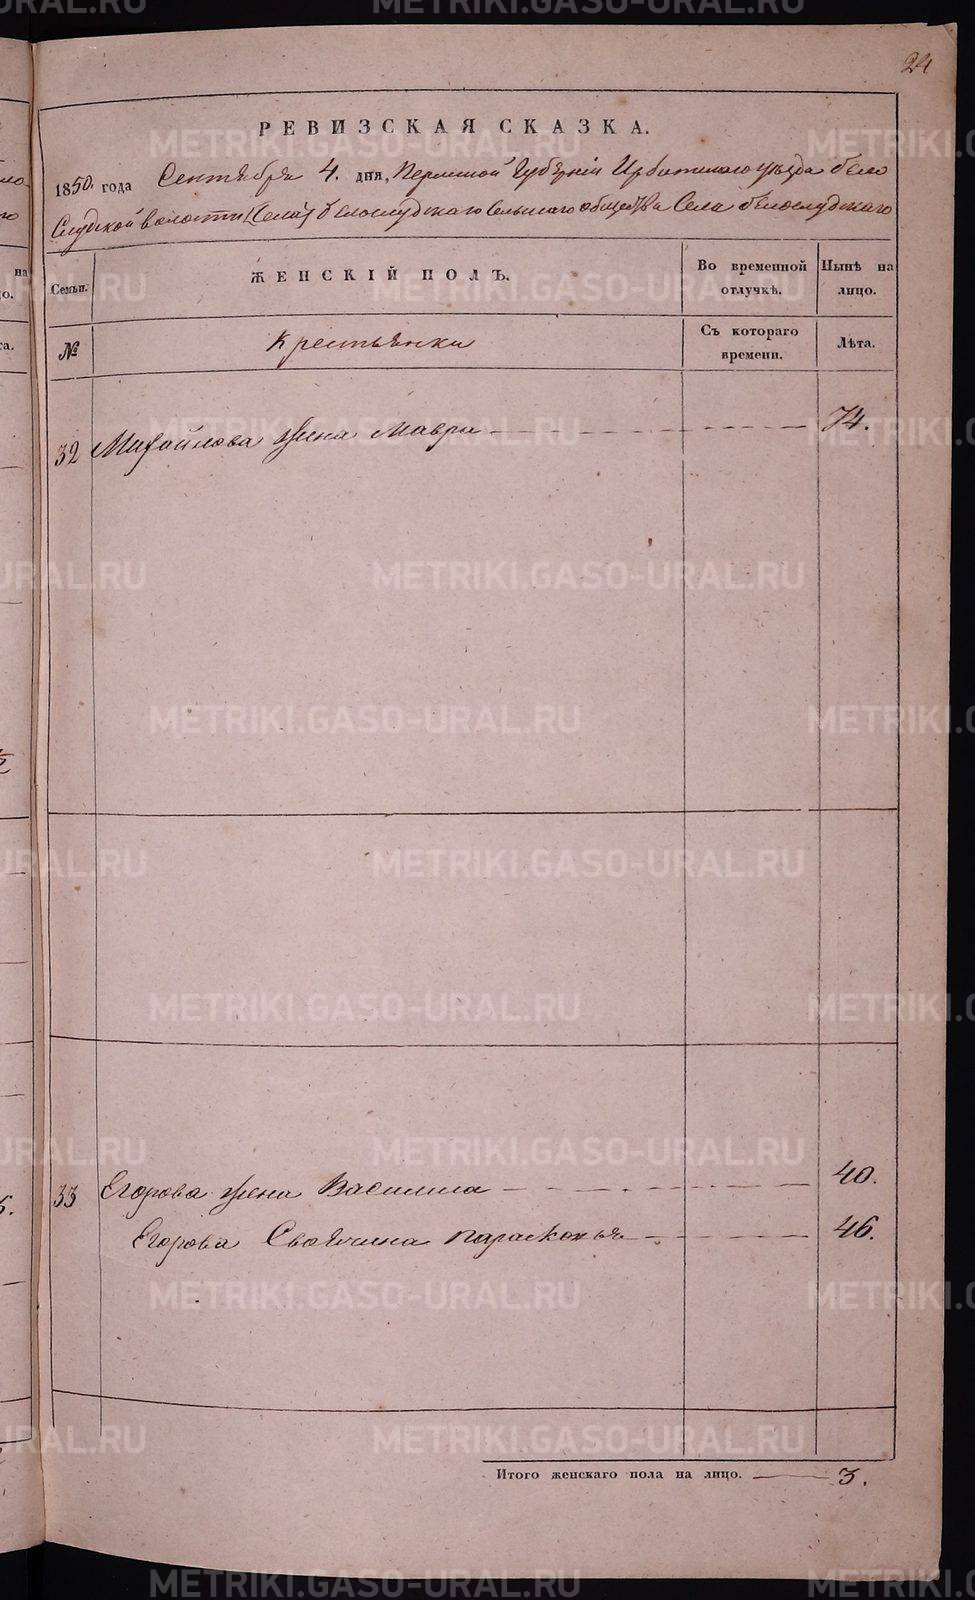 24
РЕВИЗСКАЯ СКАЗКА.
1850. года Сентября 4. дня, Пермской Губерніи Ирбитскаго уѣзда бело
Слудской волости (Села) белослудскаго Сельскаго общества Села белослудскаго
Семьи. ЖЕНСКІЙ ПОЛЪ. Во временной отлучкѣ. Нынѣ на лицо.
№ Крестьянки Съ котораго времени. Лѣта.
32 Михайлова жена Мавра 74.
33 Егорова жена Василиса 40.
Егорова Свояччина Парасковья 46.
Итого женскаго пола на лицо. 3.
METRIKI.GASO-URAL.RU